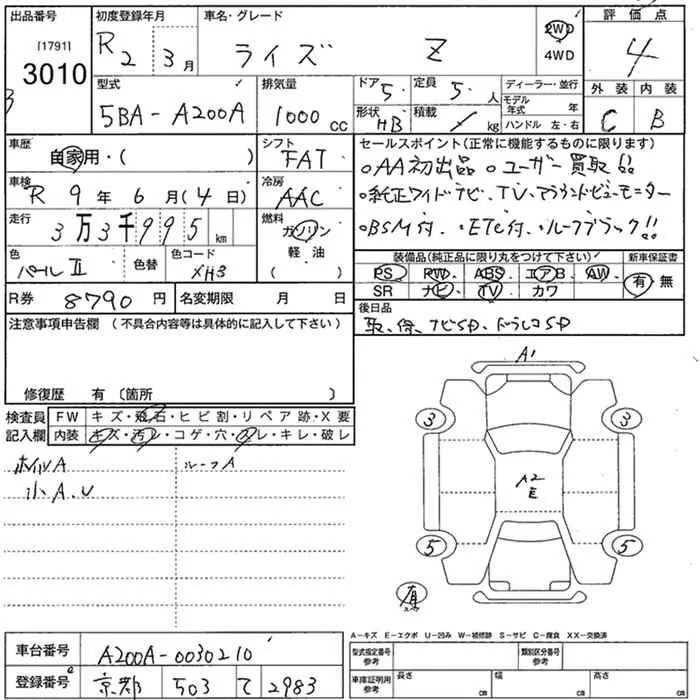 出品番号
[1791]
3010
初度登録年月
R2 3月
車名・グレード
ライズ Z
2WD
4WD
評価点
4
外装 内装
C B
型式
5BA-A200A
排気量
1000cc
ドア 5
定員 5人
形状 HB
積載 / kg
ディーラー・並行
モデル年式 年
ハンドル 左・右
車歴
自家用・( )
シフト
FAT
車検
R9年6月(4日)
冷房
AAC
走行
3万3千995km
燃料
ガソリン
軽油
( )
色
パールII
色替
色コード
XH3
R券 8790円
名変期限 月 日
セールスポイント(正常に機能するものに限ります)
○AA初出品 ○ユーザー買取品
・純正ワイドナビ、TV、アラウンドビューモニター
○BSM付、○ETC付、○ルーフブラック!!
装備品(純正品に限り丸をつけて下さい)
PS PW ABS エアB AW
SR ナビ TV カワ
新車保証書
有・無
後日品
取、保、ナビSD、ドラレコSD
注意事項申告欄(不具合内容等は具体的に記入して下さい)
修復歴 有〔箇所 〕
検査員記入欄
FW キズ・飛石・ヒビ割・リペア跡・X要
内装 キズ・汚レ・コゲ・穴・スレ・キレ・破レ
ホイルA
ルーフA
小A.U
A1
3 3
A2
E
5 5
有
A-キズ E-エクボ U-凹み W-補修跡 S-サビ C-腐食 XX-交換済
車台番号 A200A-0030210
登録番号 京都 503 て 2983
型式指定番号 参考
類別区分番号 参考
車庫証明用 参考
長さ cm
幅 cm
高さ cm